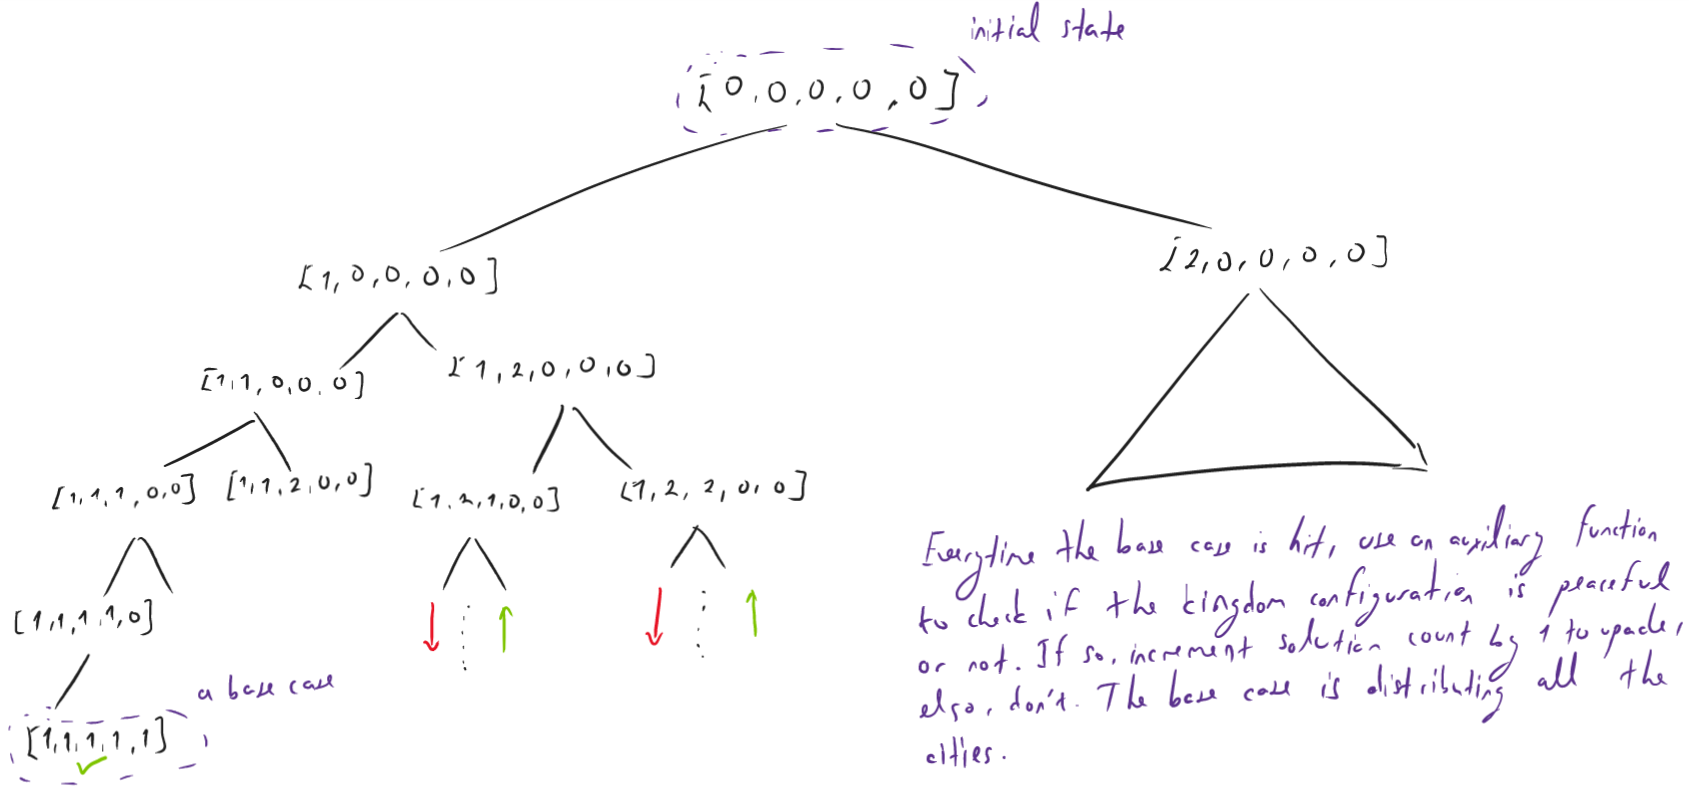 initial state
[0,0,0,0,0]
[1,0,0,0,0]
[2,0,0,0,0]
[1,1,0,0,0]
[1,2,0,0,0]
[1,1,1,0,0]
[1,1,2,0,0]
[1,2,1,0,0]
[1,2,2,0,0]
[1,1,1,1,0]
a base case
[1,1,1,1,1]
Everytime the base case is hit, use an auxiliary function
to check if the kingdom configuration is peaceful
or not. If so, increment solution count by 1 to upade,
else, don't. The base case is distributing all the
cities.